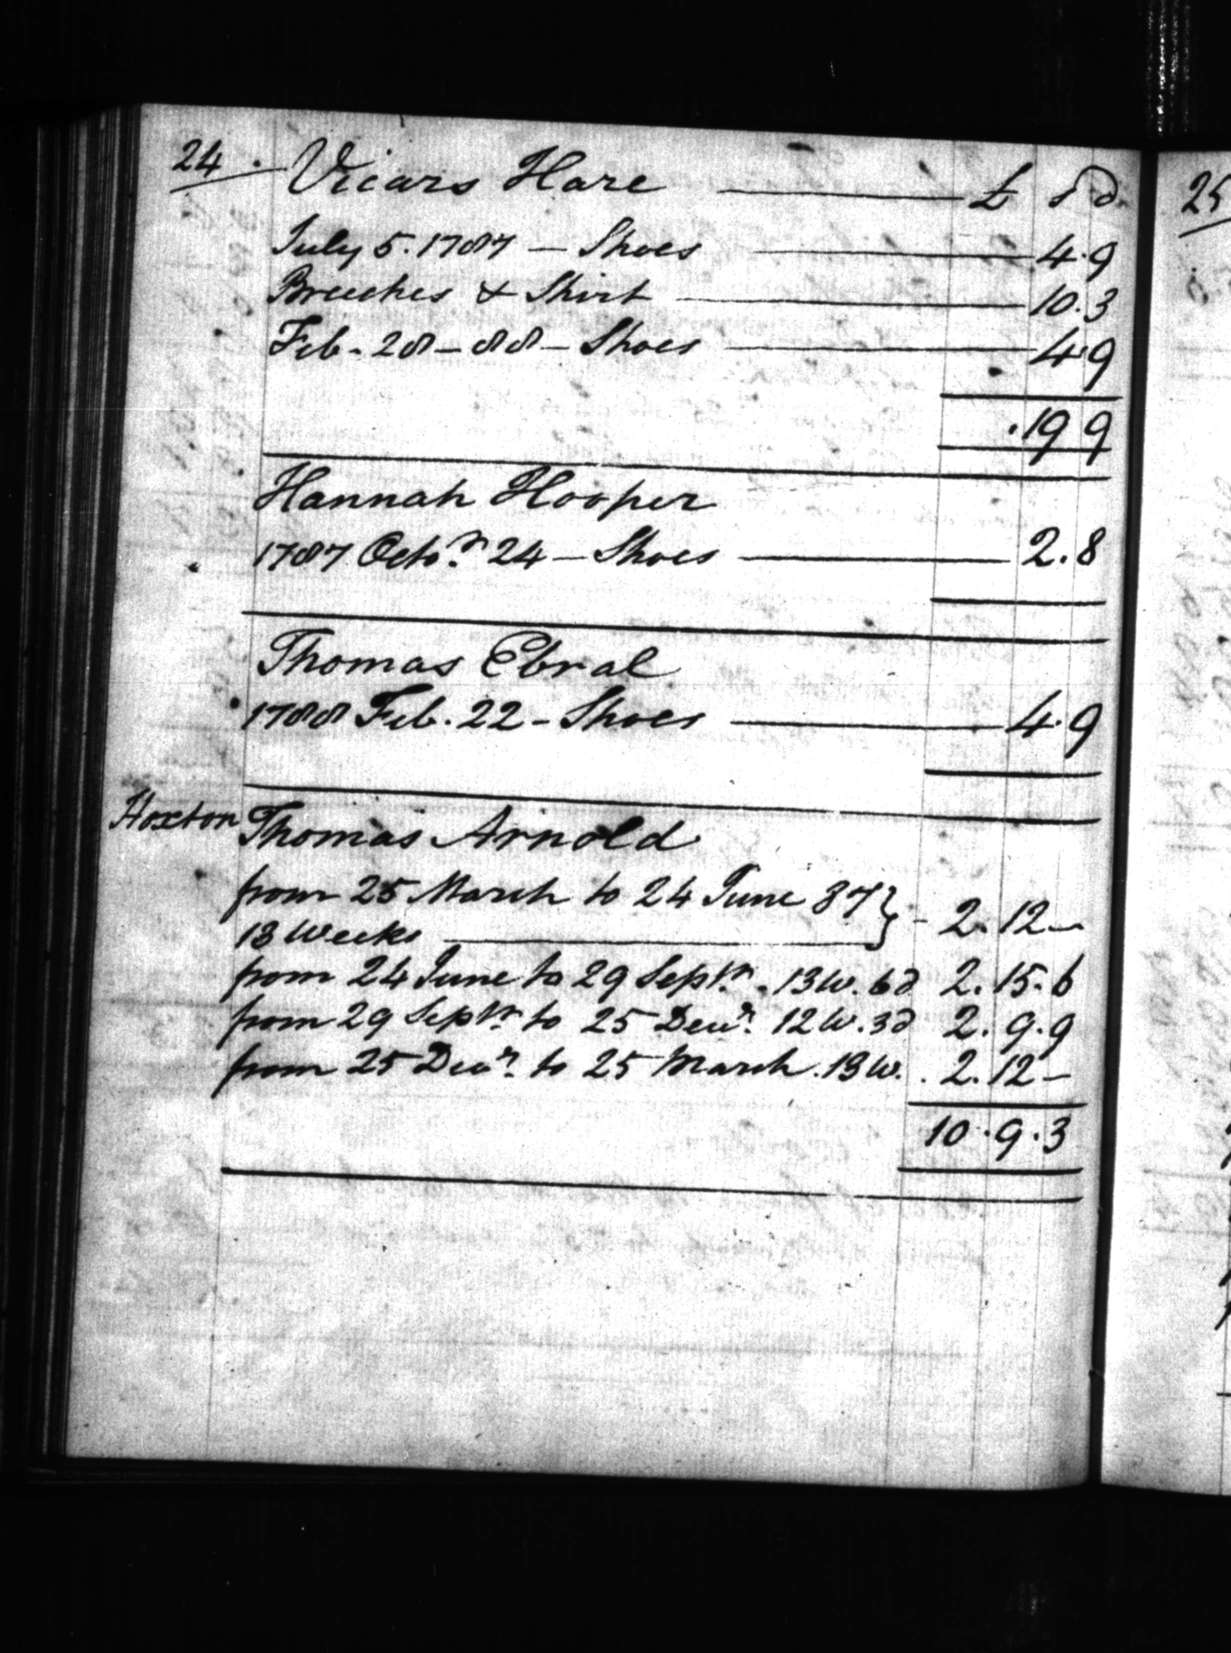 24. Vicars Hare — £ s d
July 5. 1787 — Shoes — 4.9
Breeches & Shirt — 10.3
Feb. 28 — 88 — Shoes — 4.9
.19 9
Hannah Hooper
1787 Octo.r 24 — Shoes — 2.8
Thomas Ebral
1788 Feb. 22 - Shoes — 4.9
Hoxton Thomas Arnold
from 25 March to 24 June 87 }
13 Weeks — } - 2. 12 —
from 24 June to 29 Sept.r . 13 W. 6d 2. 15. 6
from 29 Sept.r to 25 Decr. 12 W. 3d 2. 9. 9
from 25 Decr. to 25 March . 13 W. . 2. 12 —
10. 9. 3
25